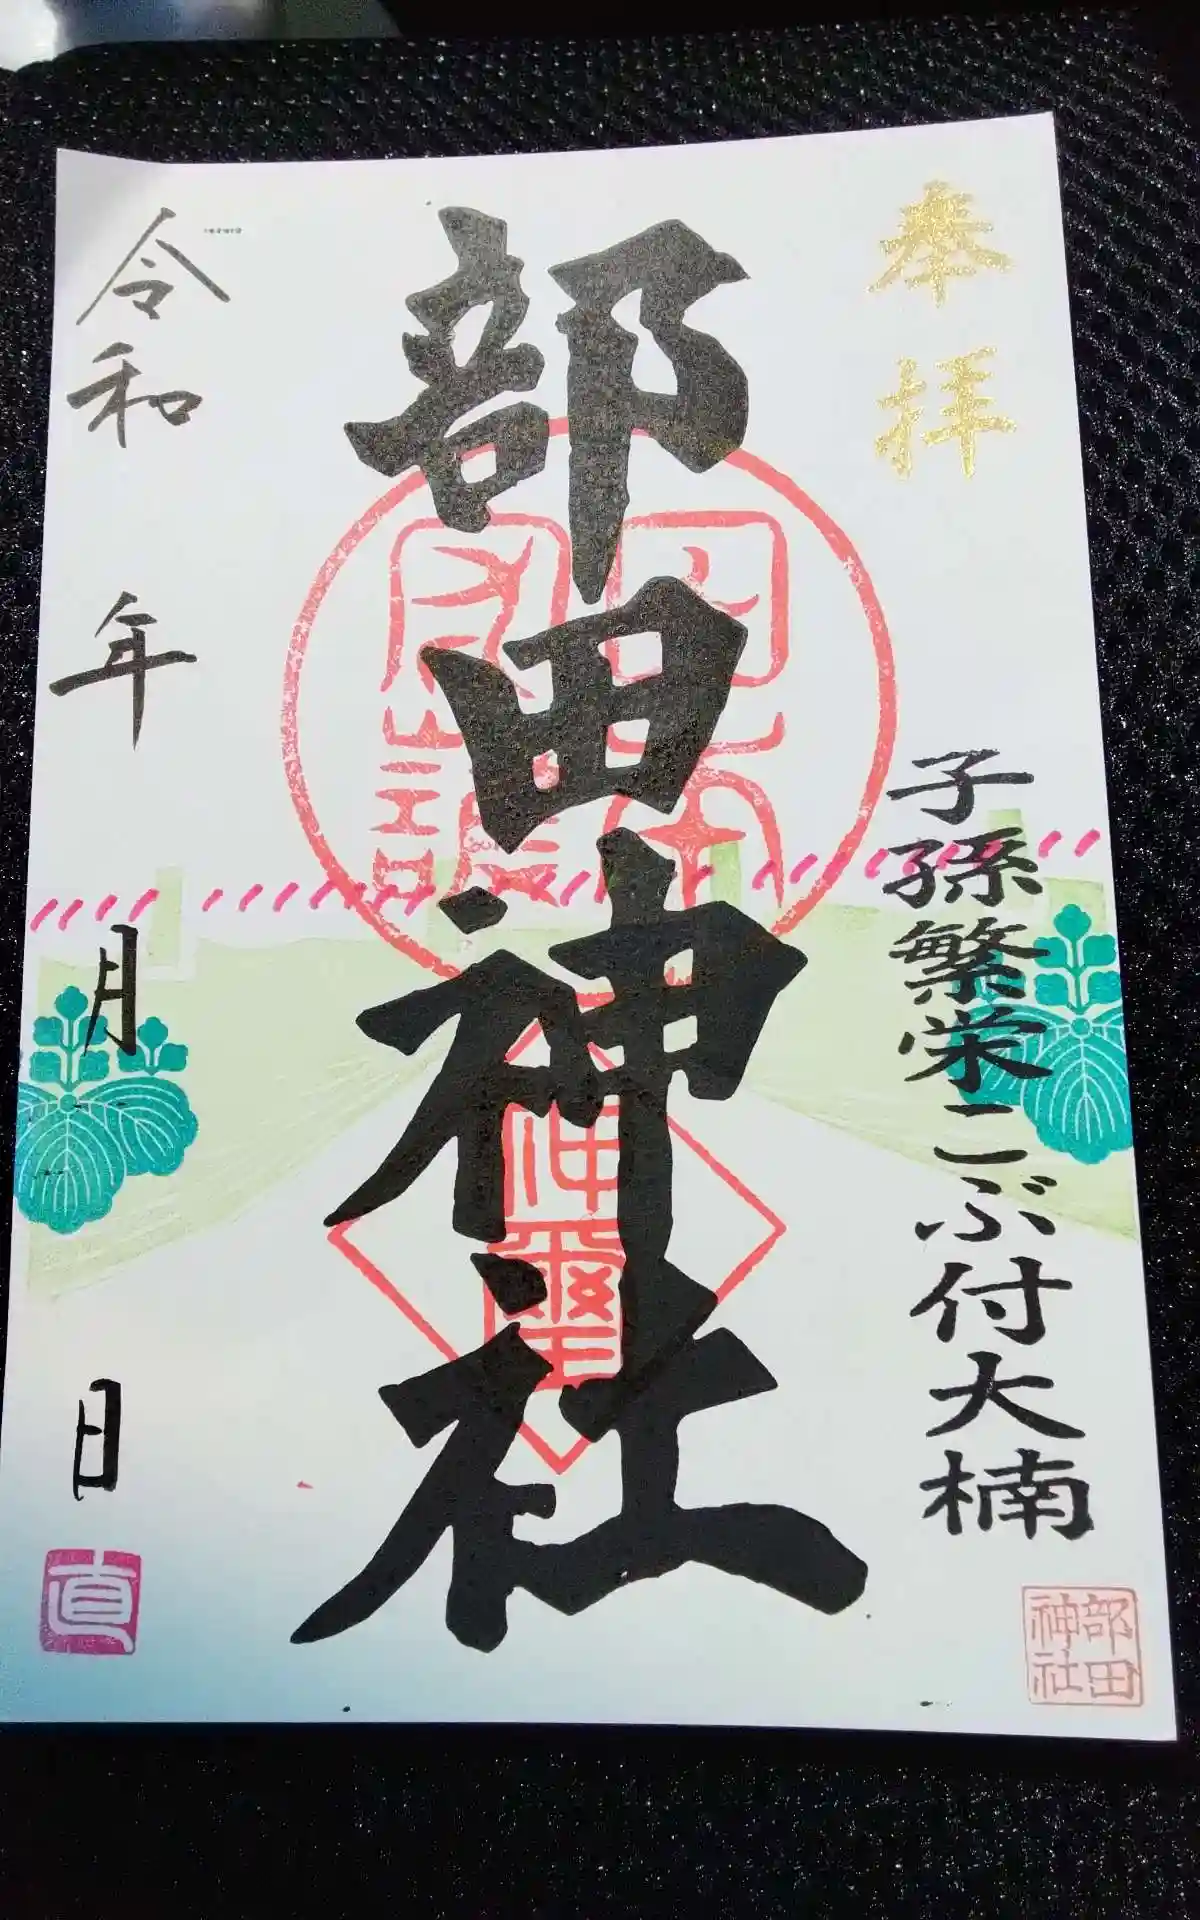 奉拝
子孫繁栄こぶ付大楠
部田
神社
部田神社
令和 年 月 日
直